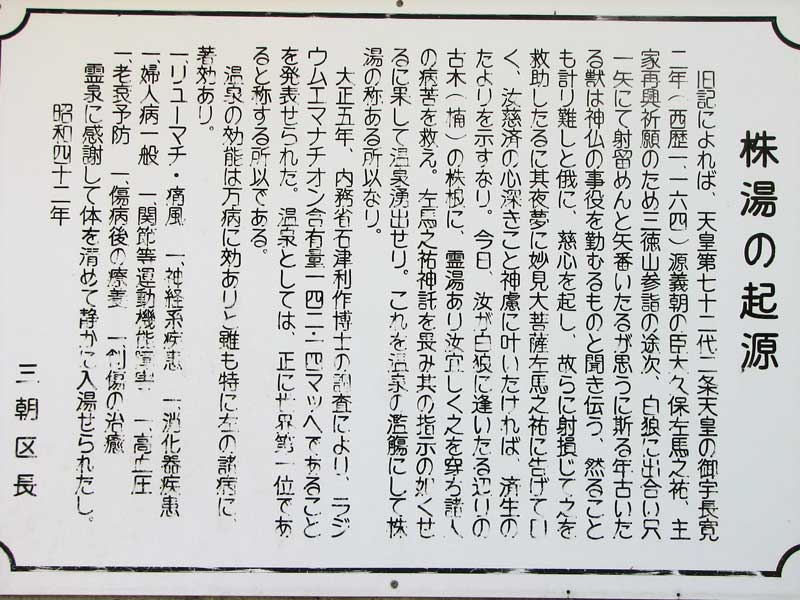 株湯の起源
旧記によれば、天皇第七十二代二条天皇の御宇長寛
二年(西歴一、一六四)源義朝の臣大久保左馬之祐、主
家再興祈願のため三徳山参詣の途次、白狼に出合い只
一矢にて射留めんと矢番いたるが思うに斯る年古いた
る獣は神仏の事役を勤むるものと聞き伝う、然ること
も計り難しと俄に、慈心を起し、故らに射損じて之を
救助したるに其夜夢に妙見大菩薩左馬之祐に告げてい
く、汝慈済の心深きこと神慮に叶いたければ、済生の
たよりを示すなり。今日、汝が白狼に逢いたる辺りの
古木(楠)の株根に、霊湯あり汝宜しく之を穿ち諸人
の病苦を救え。左馬之祐神託を畏み其の指示の如くせ
るに果して温泉湧出せり。これを温泉の濫觴にして株
湯の称ある所以なり。
大正五年、内務省石津利作博士の調査により、ラジ
ウムエマナチオン含有量一四二・四マッヘであること
を発表せられた。温泉としては、正に世界第一位であ
ると称する所以である。
温泉の効能は万病に効ありと雖も特に左の諸病に、
著効あり。
一、リューマチ・痛風 一、神経系疾患 一、消化器疾患
一、婦人病一般 一、関節等運動機能障害 一、高血圧
一、老衰予防 一、傷病後の療養 一、創傷の治癒
霊泉に感謝して体を清めて静かに入湯せられたし。
昭和四十二年
三朝区長